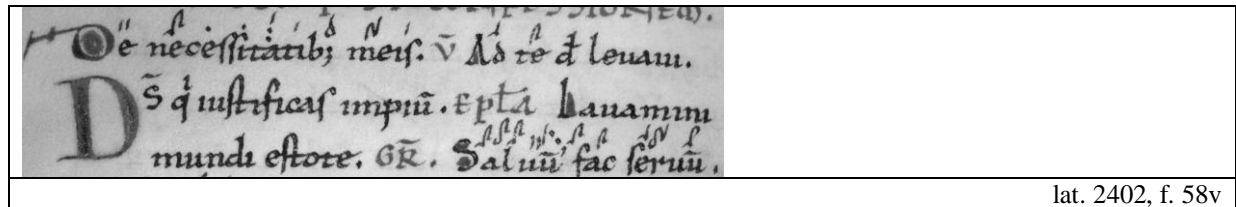 De necessitatib; meis. v̄ Ad te d̄ leuaui.
Ds̄ q̇ iustificas impiū. Epl̄a Lauamini
mundi estote. GR̄. Saluū fac seruū.
lat. 2402, f. 58v